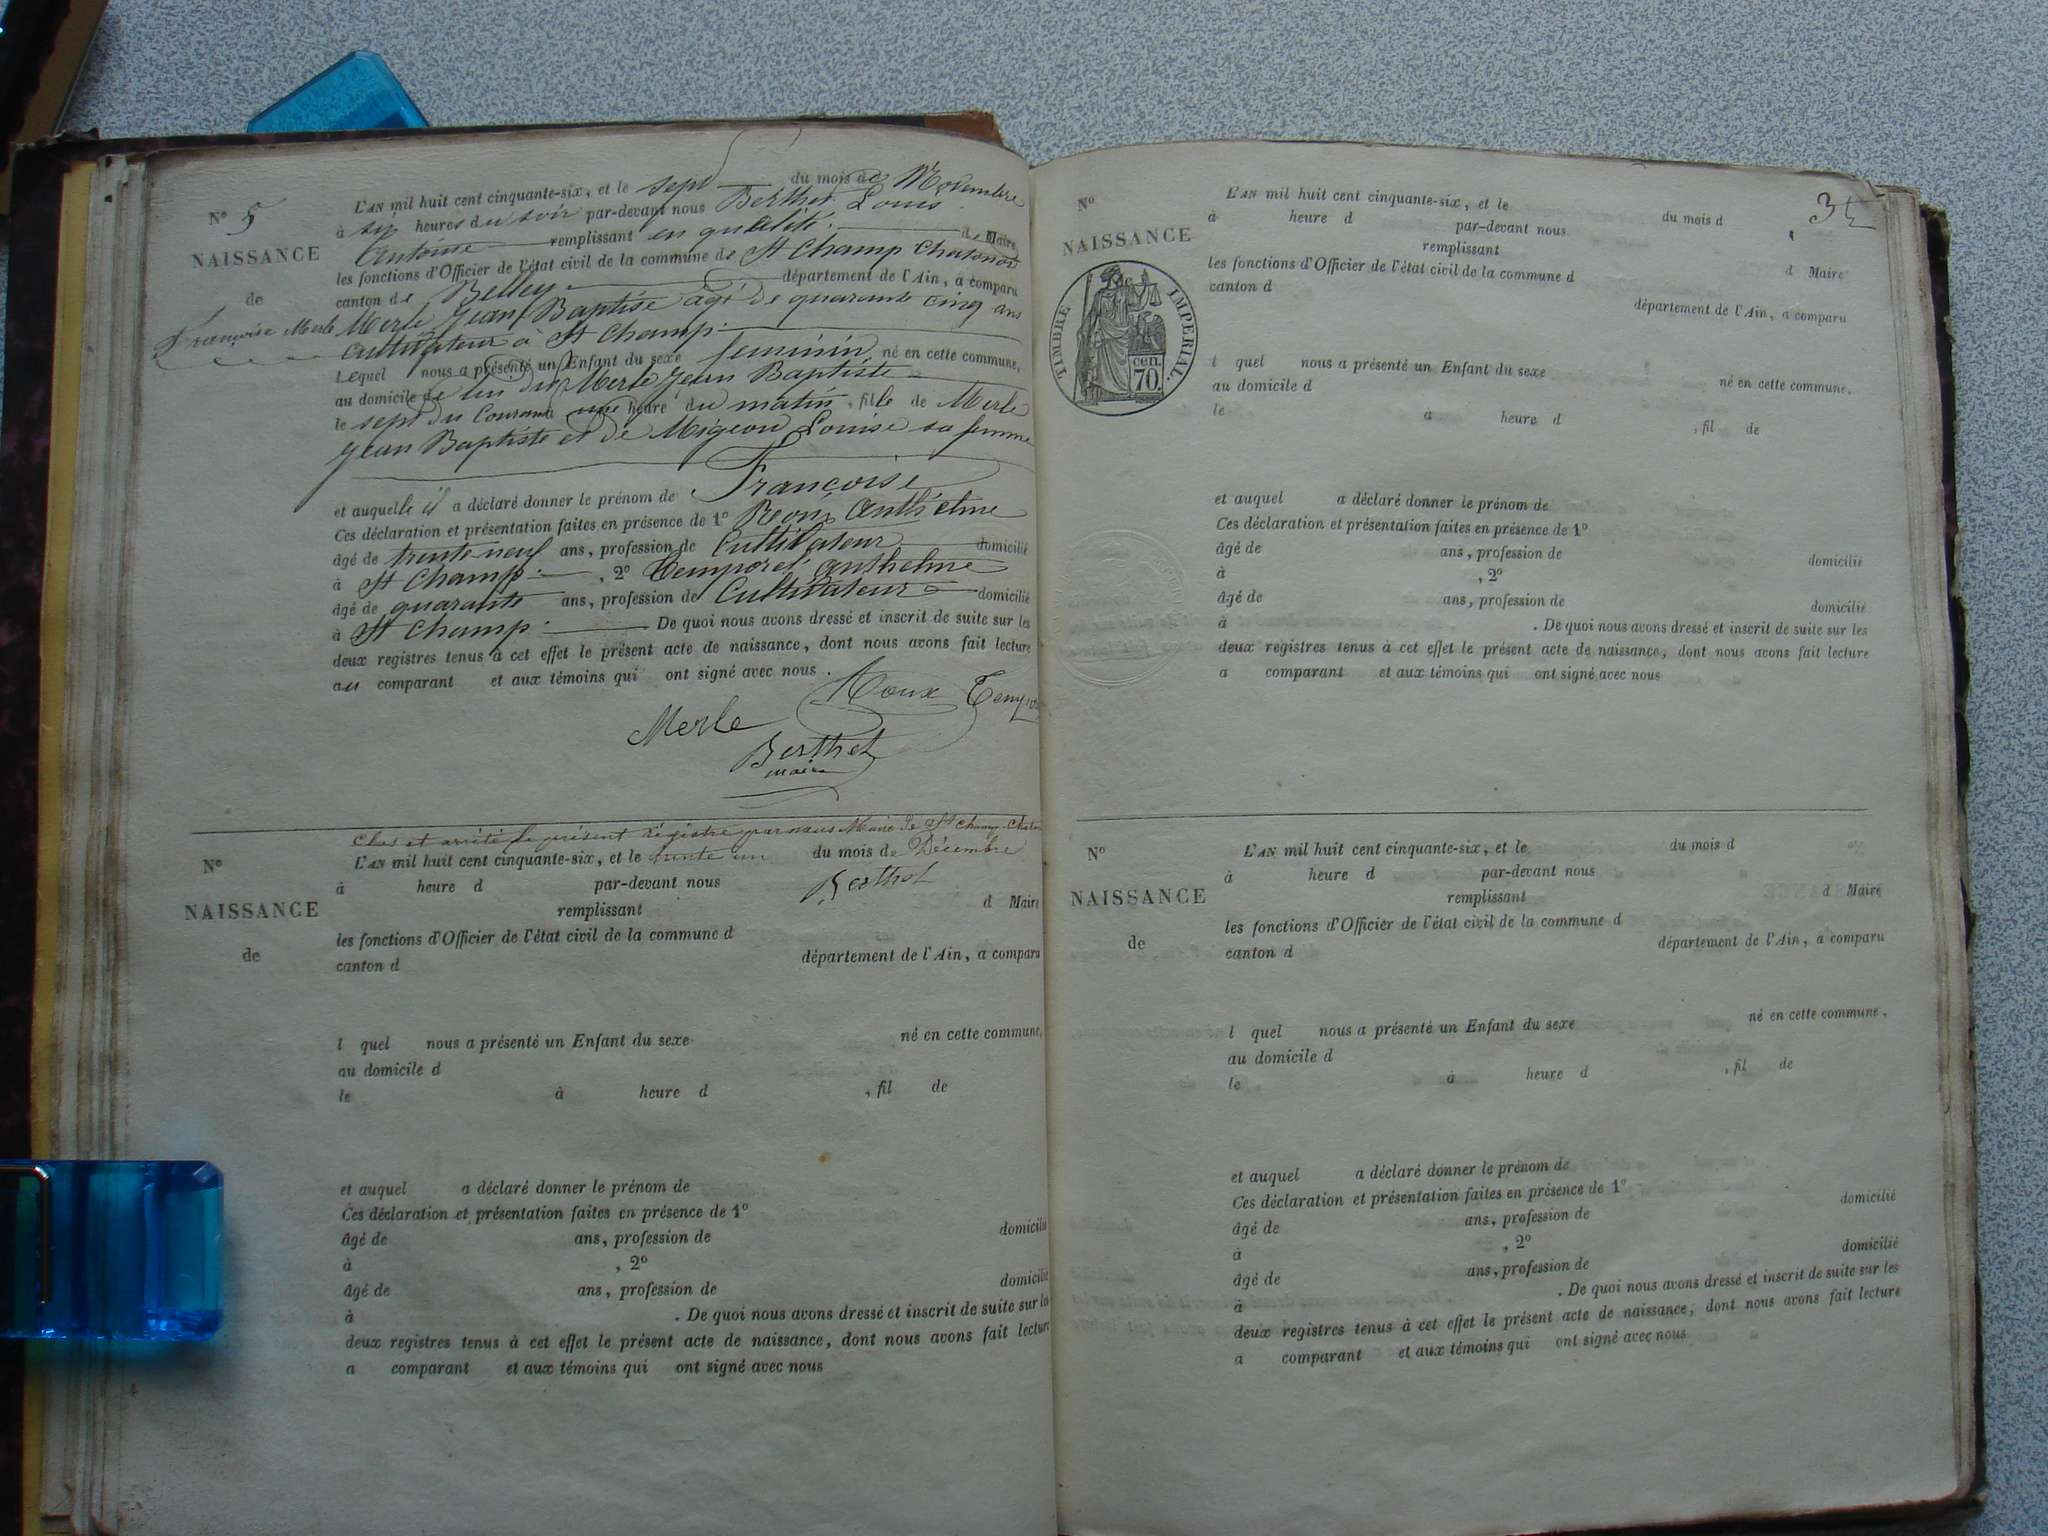 N° 5
NAISSANCE
de
Françoise Merle
L'AN mil huit cent cinquante-six, et le sept du mois de Novembre
à six heures du soir par-devant nous Berthet Louis
Antoine remplissant en qualité de Maire
les fonctions d'Officier de l'état civil de la commune de St Champ Chatonod
canton de Belley département de l'Ain, a comparu
Merle Jean Baptise âgé de quarante cinq ans
Cultivateur à St Champ.
Lequel nous a présenté un Enfant du sexe feminin, né en cette commune,
au domicile de lui dit Merle Jean Baptiste
le sept du Courant à une heure du matin, fille de Merle
Jean Baptiste et de Migeon Louise sa femme
et auquelle il a déclaré donner le prénom de Françoise
Ces déclaration et présentation faites en présence de 1° Anthelme
âgé de trente neuf ans, profession de Cultivateur domicilié
à St Champ. , 2° Temporel anthelme
âgé de quarante ans, profession de Cultivateur domicilié
à St Champ. De quoi nous avons dressé et inscrit de suite sur les
deux registres tenus à cet effet le présent acte de naissance, dont nous avons fait lecture
au comparant et aux témoins qui ont signé avec nous.
Roux
Merle
Berthet
maire
Clos et arrêté le présent régistre par nous Maire de St Champ-Chaton
N°
NAISSANCE
de
L'AN mil huit cent cinquante-six, et le trente un du mois de Décembre
à heure d par-devant nous Berthet
remplissant d Maire
les fonctions d'Officier de l'état civil de la commune d
canton d département de l'Ain, a comparu
l quel nous a présenté un Enfant du sexe né en cette commune,
au domicile d
le à heure d , fil de
et auquel a déclaré donner le prénom de
Ces déclaration et présentation faites en présence de 1°
âgé de ans, profession de domicilié
à , 2°
âgé de ans, profession de domicilié
à . De quoi nous avons dressé et inscrit de suite sur les
deux registres tenus à cet effet le présent acte de naissance, dont nous avons fait lecture
a comparant et aux témoins qui ont signé avec nous
N°
NAISSANCE
TIMBRE IMPERIAL.
cen.
70.
L'AN mil huit cent cinquante-six, et le du mois d
à heure d par-devant nous
remplissant d Maire
les fonctions d'Officier de l'état civil de la commune d
canton d département de l'Ain, a comparu
l quel nous a présenté un Enfant du sexe né en cette commune,
au domicile d
le à heure d , fil de
et auquel a déclaré donner le prénom de
Ces déclaration et présentation faites en présence de 1°
âgé de ans, profession de domicilié
à , 2°
âgé de ans, profession de domicilié
à . De quoi nous avons dressé et inscrit de suite sur les
deux registres tenus à cet effet le présent acte de naissance, dont nous avons fait lecture
a comparant et aux témoins qui ont signé avec nous
N°
NAISSANCE
de
L'AN mil huit cent cinquante-six, et le du mois d
à heure d par-devant nous
remplissant d Maire
les fonctions d'Officier de l'état civil de la commune d
canton d département de l'Ain, a comparu
l quel nous a présenté un Enfant du sexe né en cette commune,
au domicile d
le à heure d , fil de
et auquel a déclaré donner le prénom de
Ces déclaration et présentation faites en présence de 1°
âgé de ans, profession de domicilié
à , 2°
âgé de ans, profession de domicilié
à . De quoi nous avons dressé et inscrit de suite sur les
deux registres tenus à cet effet le présent acte de naissance, dont nous avons fait lecture
a comparant et aux témoins qui ont signé avec nous